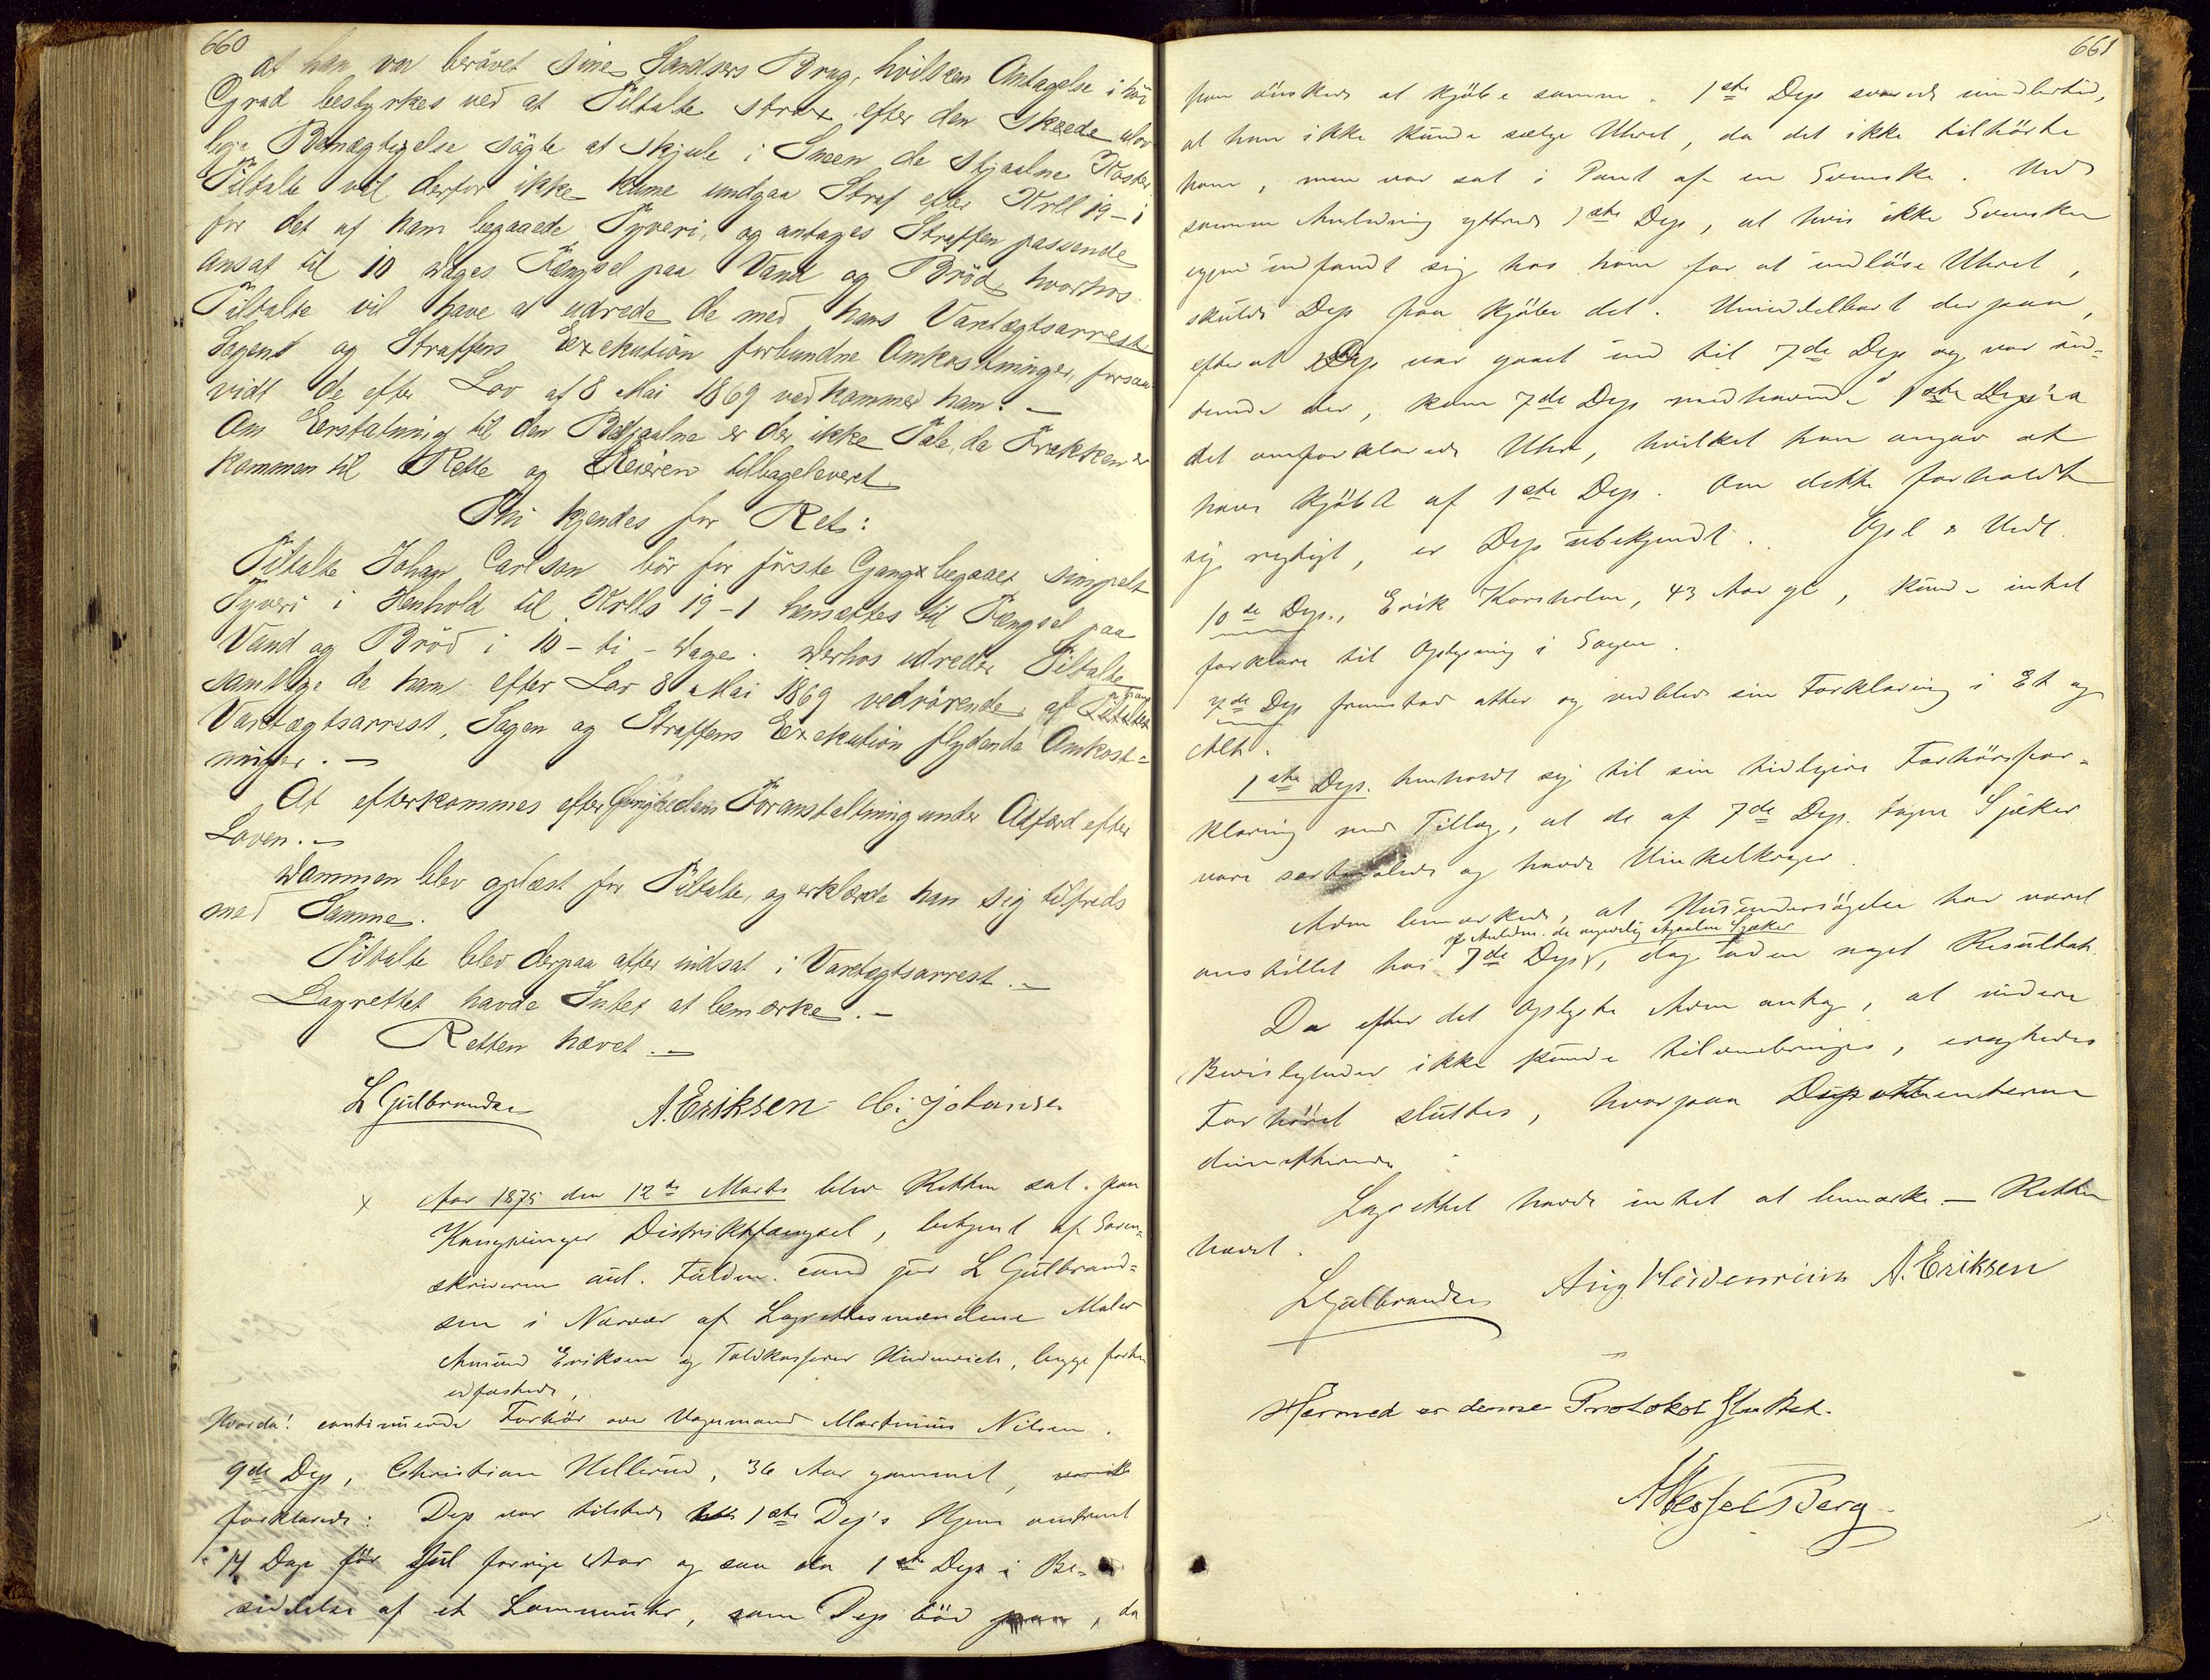 660
at han var berøvet sine Sandsers Brug, hvilken Antagelse i høi
Grad bestyrkes ved at Tiltalte strax efter den skeede ulov
lige Bemægtigelse søgte at skjule i Sneen de stjaalne Koster
Tiltalte vil derfor ikke kunne undgaa Straf efter Krll 19-1
for det af ham begaaede Tyveri, og antages Straffen passende
ansat til 10 Dages Fængsel paa Vand og Brød, hvorhos
Tiltalte vil have at udrede de med hans Varetægtsarrest
Sagens og Straffens Exekution forbundne Omkostninger, forsaa
vidt de efter Lov af 8 Mai 1869 vedkommer ham. –
Om Erstatning til den Bestjaalne er der ikke Tale, da Frakken er
kommen til Rette og Eieren tilbageleveret
Thi kjendes for Ret:
Tiltalte Johan Carlson bør for første Gang begaaet simpelt
Tyveri i Henhold til Krlls 19-1 hensættes til Fængsel paa
Vand og Brød i 10 - ti - Dage. Derhos udreder Tiltalte
samtlige de ham efter Lov 8 Mai 1869 vedrørende, af Tiltaltes
Varetægtsarrest, Sagen og Straffens Exekution flydende Omkost=
ninger. –
At efterkommes efter Øvrighedens Foranstaltning under Adfærd efter
Loven. –
Dommen blev oplæst for Tiltalte, og erklærede han sig tilfreds
med Samme.
Tiltalte blev derpaa atter indsat i Varetægtsarrest. –
Lagrettet havde Intet at bemærke. –
Retten hævet. –
L Gulbrandsen A. Eriksen Chr. Johansen
x Aar 1875 den 12te Marts blev Retten sat paa
Kongsvinger Distriktsfængsel, betjent af Soren=
skriverens aut. Fuldm. cand jur L Gulbrand=
sen i Nærvær af Lagrettesmændene Maler
Amund Eriksen og Toldkasserer Heidenreich, begge forhen
edfæstede,
Hvorda! continuerede Forhør over Vognmand Martinius Nilsen.
9de Dep, Christian Hellerud, 36 Aar gammel,
forklarede: Dep var tilstede 1ste Dep's Hjem omtrent
14 Dage før Jul forrige Aar og saa da 1ste Dep i Be=
siddelse af et Lommeuhr, som Dep bød paa, da
661
han ønskede at kjøbe samme. 1ste Dep svarede imidlertid,
at han ikke kunde sælge Uhret, da det ikke tilhørte
ham, men var sat i Pant af en Svenske. Ved
samme Anledning yttrede 1ste Dep, at hvis ikke Svensken
igjen indfandt sig hos ham for at indløse Uhret,
skulde Dep faa kjøbe det. Umiddelbart derpaa,
efterat Dep var gaaet ind til 7de Dep og var sid=
dende der, kom 7de Dep medhavende 1ste Dep fra
det omforklarede Uhr, hvilket han angav at
have kjøbt af 1ste Dep. Om dette forholdt
sig rigtigt, er Dep ubekjendt. Opl & Vedt.
10de Dep., Erik Korsholm, 43 Aar gl, kunde intet
forklare til Oplysning i Sagen.
7de Dep fremstod atter og vedblev sin Forklaring i Et og
Alt.
1ste Dep. henholdt sig til sin tidligere Forhørsfor=
klaring med Tillæg, at de af 7de Dep. tagne Sjæker
vare og havde Vinkelkroger.
Adm bemærkede, at Husundersøgelse har været
af Anledn. de angivelig stjaalne Sjæker
anstillet hos 7de Dep, dog uden noget Resultat.
Da efter det Oplyste Adm antog, at videre
Bevisligheder ikke kunde tilveiebringes, eragtedes
Forhøret sluttet, hvorpaa Deponenterne
dimitterede.
Lagrettet havde intet at bemærke – Retten
hævet.
L Gulbrandsen Aug Heidenreich A. Eriksen
Hermed er denne Protokol sluttet.
A Wessel Berg